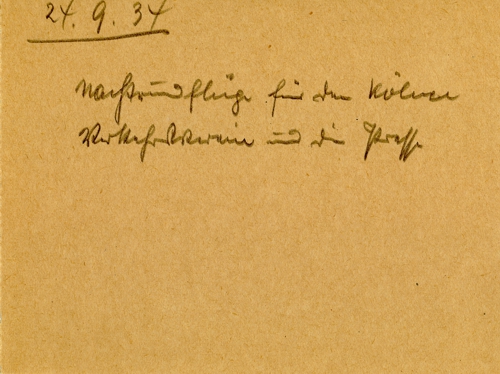 24. 9. 34
Nachtrundflüge für den Kölner
Verkehrsverein und die Presse